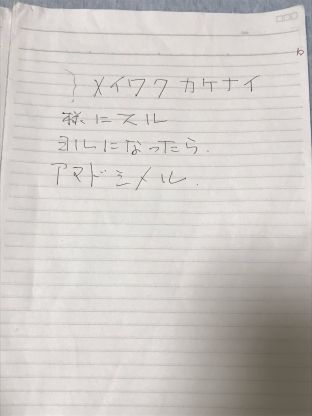 メイワクカケナイ
様にスル
ヨルになったら.
アマドシメル.